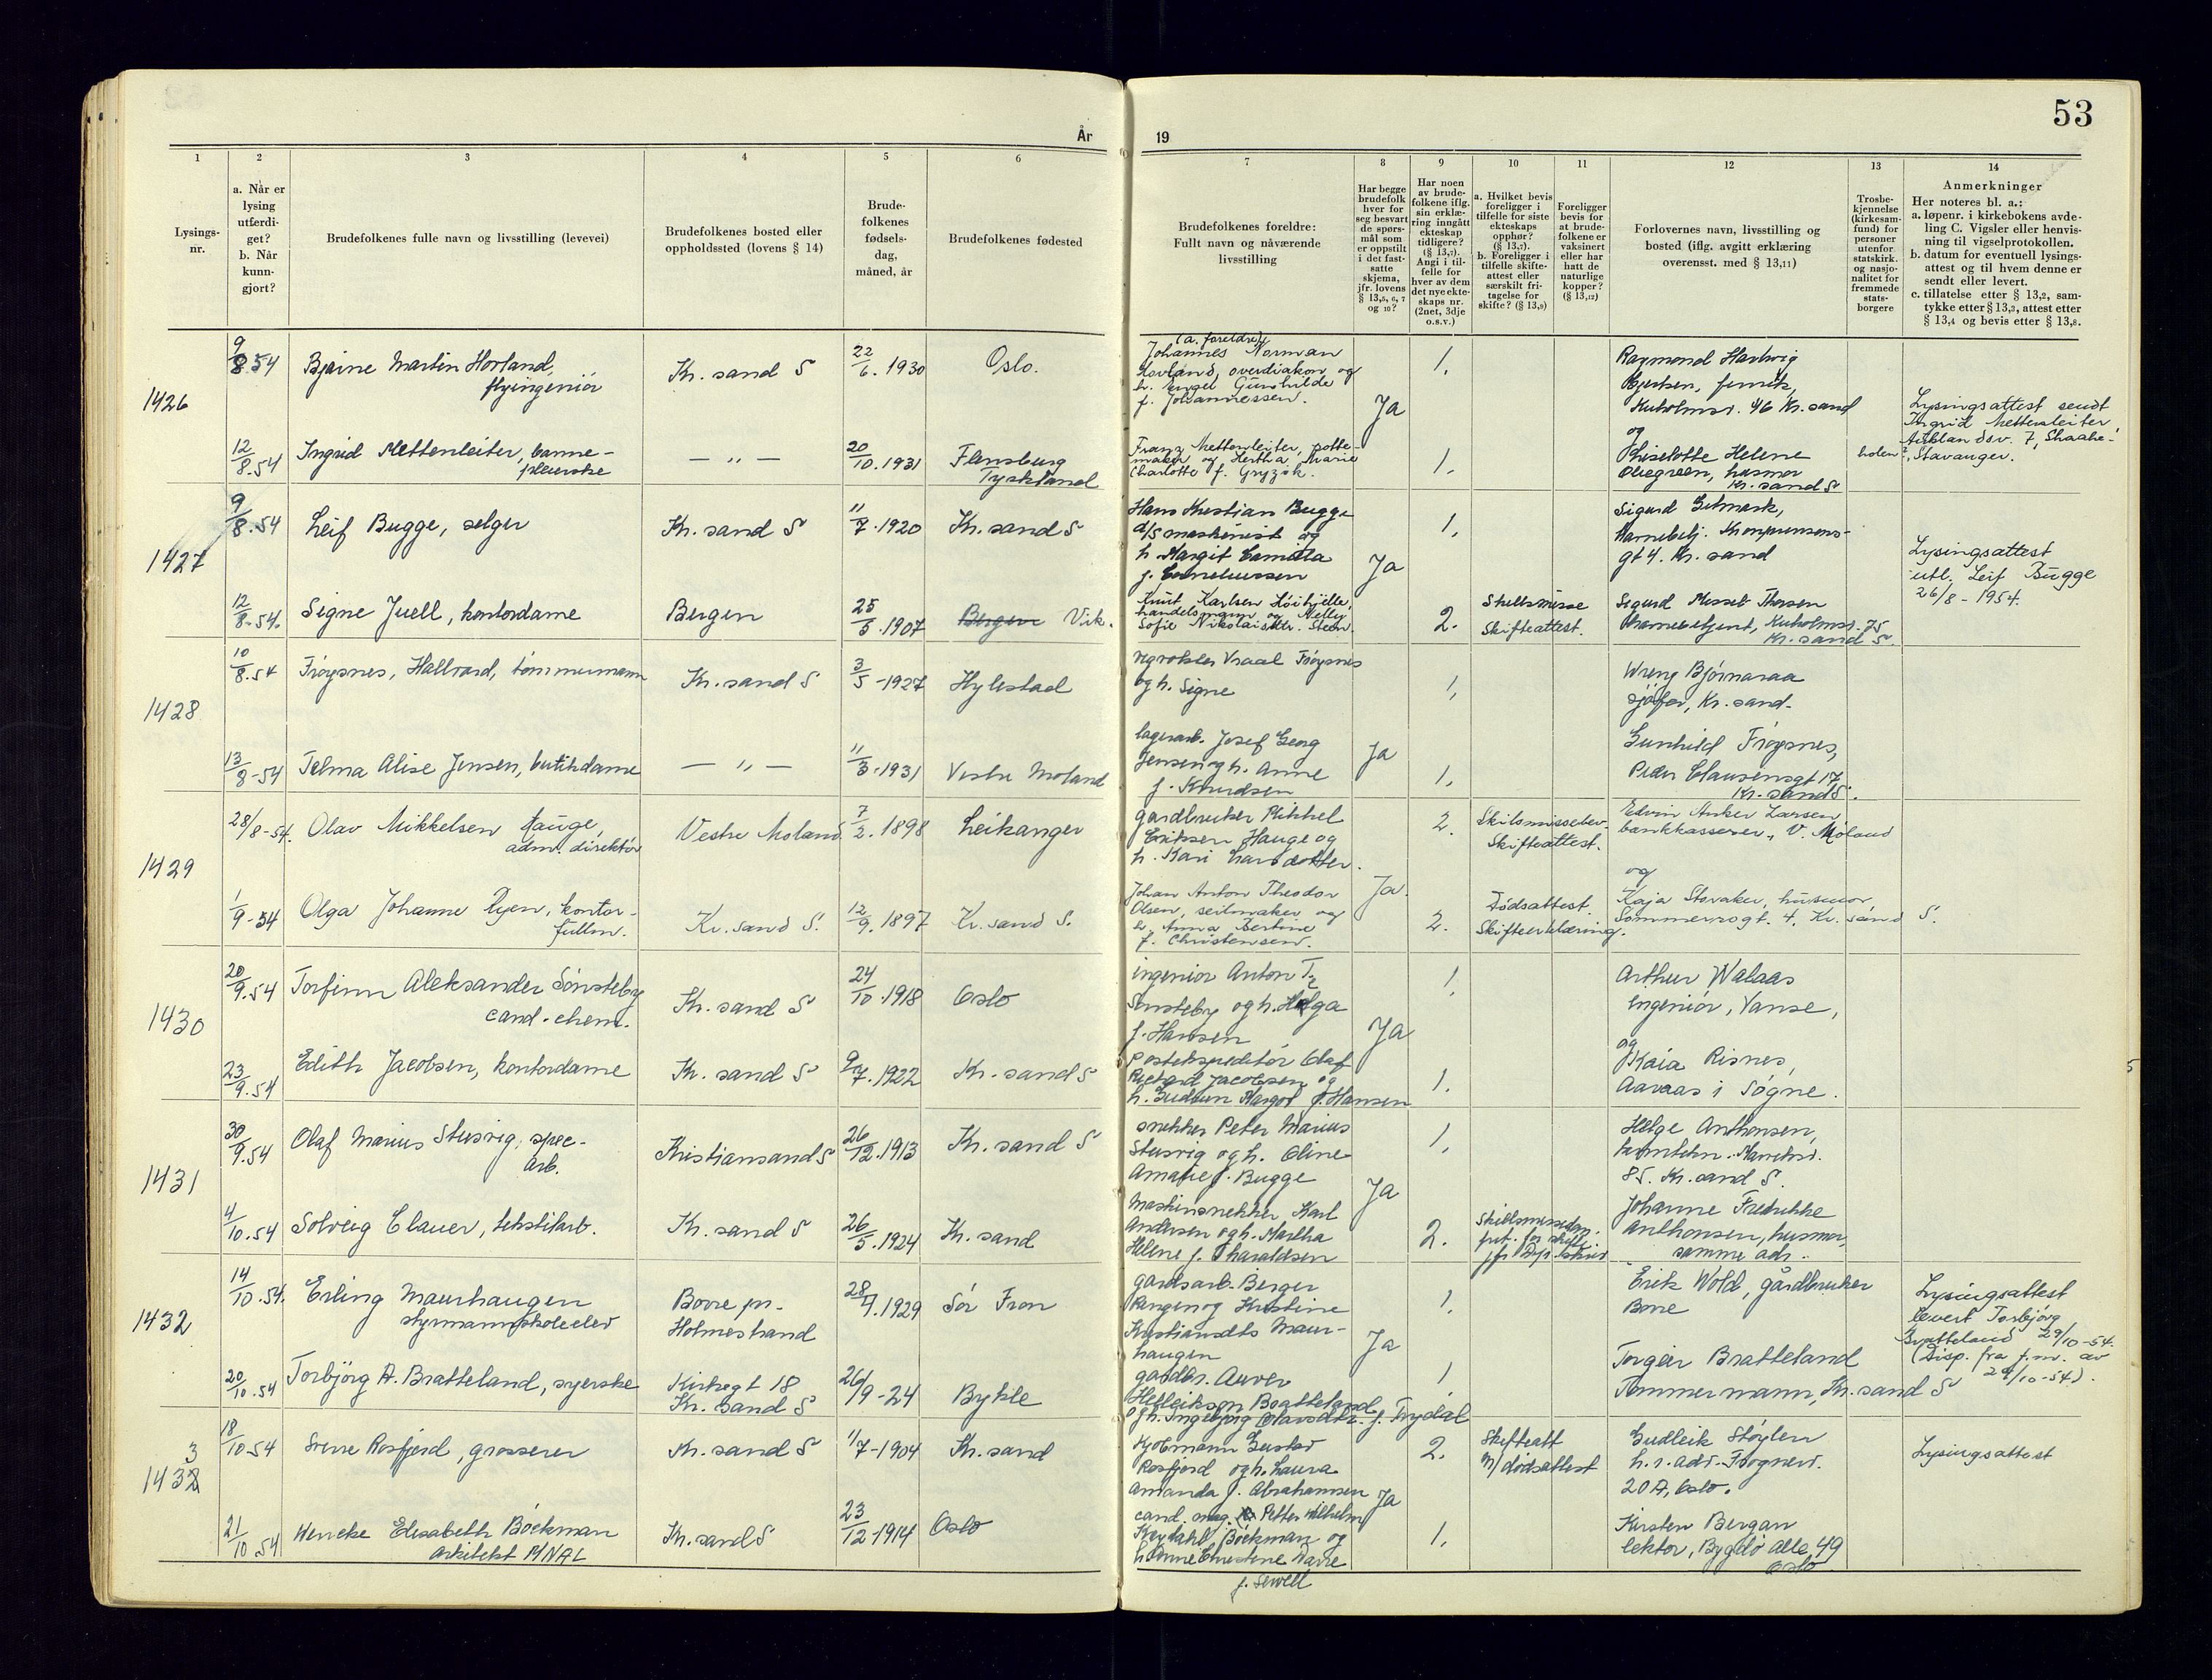 53
År
19
1
2
3
4
5
6
7
8
9
10
11
12
13
14
Lysings-
nr.
a. Når er
lysing
utferdi-
get?
b. Når
kunn-
gjort?
Brudefolkenes fulle navn og livsstilling (levevei)
Brudefolkenes bosted eller
oppholdssted (lovens § 14)
Brude-
folkenes
fødsels-
dag,
måned, år
Brudefolkenes fødested
Brudefolkenes foreldre:
Fullt navn og nåværende
livsstilling
Har begge
brudefolk
hver for
seg besvart
de spørs-
mål som
er oppstilt
i det fast-
satte
skjema,
jfr. lovens
§ 13,5, 6, 7
og 10?
Har noen
av brude-
folkene iflg.
sin erklæ-
ring inngått
ekteskap
tidligere?
(§ 13,7).
Angi i til-
felle for
hver av dem
det nye ekte-
skaps nr.
(2net, 3dje
o.s.v.)
a. Hvilket bevis
foreligger i
tilfelle for siste
ekteskaps
opphør?
(§ 13,7).
b. Foreligger i
tilfelle skifte-
attest eller
særskilt fri-
tagelse for
skifte? (§ 13,9)
Foreligger
bevis for
at brude-
folkene er
vaksinert
eller har
hatt de
naturlige
kopper?
(§ 13,12)
Forlovernes navn, livsstilling og
bosted (iflg. avgitt erklæring
overensst. med § 13,11)
Trosbe-
kjennelse
(kirkesam-
fund) for
personer
utenfor
statskirk.
og nasjo-
nalitet for
fremmede
stats-
borgere
Anmerkninger
Her noteres bl. a.:
a. løpenr. i kirkebokens avde-
ling C. Vigsler eller henvis-
ning til vigselprotokollen.
b. datum for eventuell lysings-
attest og til hvem denne er
sendt eller levert.
c. tillatelse etter § 13,2, sam-
tykke etter § 13,3, attest etter
§ 13,4 og bevis etter § 13,8.
1426
9/8 54
Bjarne Martin Hovland,
flyingeniør
Kr. sand S
22/6. 1930
Oslo.
(a. foreldre)
Johannes Norman
Hovland, overdiakon og
h. Engel Gunhilde
f. Johannessen.
Ja
1.
Raymond Hartwig
fenrik,
Kuholmsv. 46 Kr. sand
og
12/8.54
Ingrid Mettenleiter, barne-
pleierske
— „ —
20/10.1931
Flensburg
Tyskland
Franz Mettenleiter, potte-
maker og Hertha Marie
Charlotte f.
1.
Liselotte Helene
husmor
Kr. sand S
Lysingsattest sendt
Ingrid Mettenleiter,
7,
Stavanger.
1427
9/8.54
Leif Bugge, selger
Kr. sand S
11/7.1920
Kr. sand S
Hans Kristian Bugge
d/s maskinist og
h. Margit Camilla
f. Corneliussen
Ja
1.
Sigurd
gt 4. Kr. sand
Lysingsattest
utl. Leif Bugge
26/8 - 1954.
12/8.54.
Signe Juell, kontordame
Bergen
25/5.1907
Bergen Vik.
Knut Karlsen
handelsmann og Nelly
Sofie
2.
Skilsmisse
Skifteattest.
Sigurd Thorsen
Kuholmsv. 75
Kr. sand S.
1428
10/8.54
Frøysnes, Hallvard, tømmermann
Kr. sand S
3/5-1927
Hylestad
Vraal Frøysnes
og h. Signe
1,
Wreng Bjørnaraa
sjåfør, Kr. sand.
13/8-54
Telma Alise Jensen, butikdame
— „ —
11/3.1931
Vestre Moland
lagerarb. Josef Georg
Jensen og h. Anne
f. Knudsen
Ja
1,
Gunhild Frøysnes,
Peder Clausensgt 17,
Kr. sand S.
1429
28/8-54.
Olav Mikkelsen Hauge,
adm. direktør
Vestre Moland
7/2. 1898
Leikanger
gardbruker Mikkel
Eriksen Hauge og
h. Kari Larsdotter.
Ja.
2.
Skilsmissebev.
Skifteattest.
Edvin Anker Larsen
bankkasserer, V. Moland
og
1/9-54
Olga Johanne Ryen, kontor-
fullm.
Kr. sand S.
12/9. 1897
Kr. sand S.
Johan Anton Theodor
Olsen, seilmaker og
h. Anna Bertine
f. Christensen.
2.
Dødsattest.
Skifteerklæring.
Kaja Storaker, husmor,
Sommerrogt. 4, Kr. sand S.
1430
20/9.54
Torfinn Aleksander Sønsteby
cand. chem.
Kr. sand S
24/10.1918
Oslo
ingeniør Anton T.
Sønsteby og h. Helga
f. Hansen
Ja
1.
Arthur Walaas
Ingeniør, Vanse,
og
23/9.54
Edith Jacobsen, kontordame
Kr. sand S
9/7. 1922
Kr. sand S
Postekspeditør Olaf
Richard Jacobsen og
h. Gudrun Margot f. Hansen
1.
Kaia Risnes,
Aavaas i Søgne.
1431
30/9.54
Olaf Marius Stusvig, spec-
arb.
Kristiansand S
26/12.1913
Kr. sand S
snekker Peter Marius
Stusvig og h. Oline
Amalie f. Bugge
Ja
1,
Helge Anthonsen,
85. Kr. sand S.
4/10.54
Solveig Clauer, tekstilarb.
Kr. sand S
26/5.1924
Kr. sand
Maskinsnekker Karl
Andersen og h. Martha
Helene f. Tharaldsen
2.
Johanne Fredrikke
Anthonsen, husmor,
samme adr.
1432
14/10.54.
Erling Maurhaugen
styrmannskoleelev
Borre pr.
Holmestrand
28/7.1929
Sør Fron
gardsarb. Birger
Rangen og Kristine
Kristiansdts Maur-
haugen
Ja
1.
Erik Wold, gårdbruker
Borre
Lysingsattest
levert Torbjörg
Bratteland 29/10-54.
(Disp. fra f.m. av
29/10-54).
20/10.54
Torbjörg A. Bratteland, syerske
Kirkegt 18
Kr. sand S
26/9-24
Bykle
gardbr. Auver
Helleikson Bratteland
og h. Ingebjørg Olavsdtr. f. Trydal
1
Torgeir Bratteland
Tømmermann, Kr. sand S
3
1432
18/10-54
Sverre Rosfjord, grosserer
Kr. sand S
1/7-1904
Kr. sand
Kjøbmann Gustav
Rosfjord og h. Laura
Amanda f. Abrahamsen
Ja
2.
Skifteatt
m/dødsattest
Gudleik Støylen
h.r. adv. Frognerv.
20A, Oslo.
Lysingsattest
21/10.54
Wencke Elisabeth Böckman
arkitekt MNAL
Kr. sand S
23/12.1914
Oslo
cand. mag. Petter Wilhelm
Kreydahl Böckman og
h. Anne Christine Darre
f. Sewell
1.
Kirsten Bergan
lektor, Bygdø Alle 49
Oslo